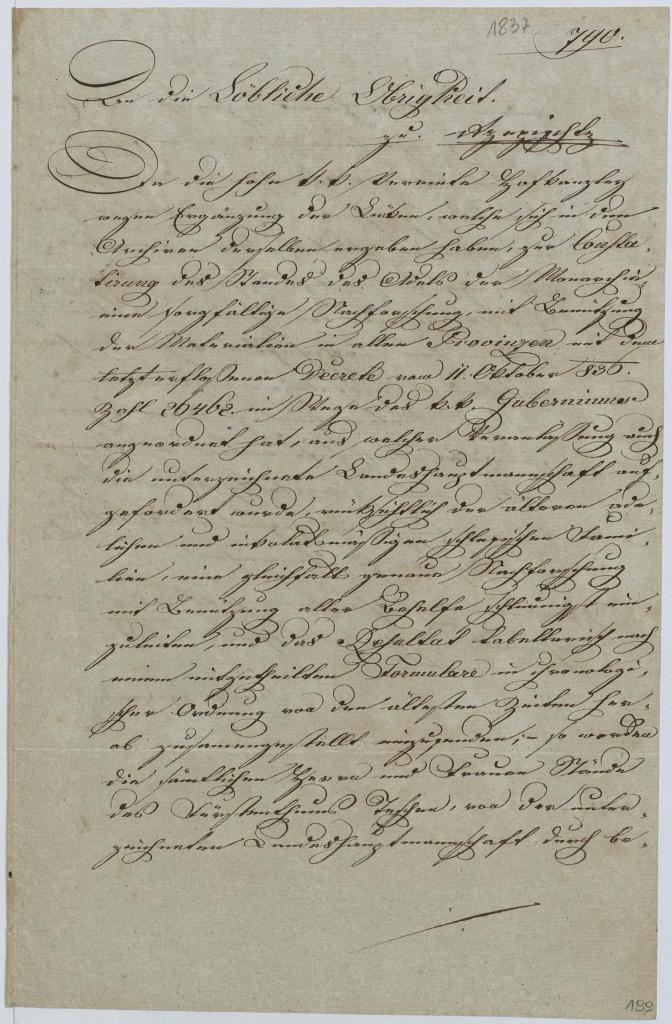 1837
790.
An die Löbliche Obrigkeit.
zu
Da die hohe k. k. Vereinte Hofkanzley
wegen Ergänzung der Lüken, welche sich in den
Archiven derselben ergeben haben, zur Consta-
tirung des Standes des Adels der Monarchie
eine sorgfältige Nachforschung, mit Benützung
der Materialien in allen Provinzen mit dem
letzt erflossenen Decrete vom 11. Oktober 836.
Zahl 26462. im Wege des k. k. Guberniums
angeordnet hat, aus welcher Veranlassung auch
die unterzeichnete Landeshauptmannschaft auf-
gefordert wurde, rüksichtlich der älteren ade-
lichen und inkolatsmässigen schlesischen Fami-
lien, eine gleichfalls genaue Nachforschung
mit Benützung aller Behelfe schleunigst ein-
zuleiten, und das Resultat tabellarisch nach
einem mitgetheilten Formulare in chronologi-
scher Ordnung von den ältesten Zeiten her-
ab zusamengestellt einzusenden; – so werden
die sämtlichen Herrn und Frauen Stände
des Fürstenthums Teschen, von der unter-
zeichneten Landeshauptmannschaft durch be-
199